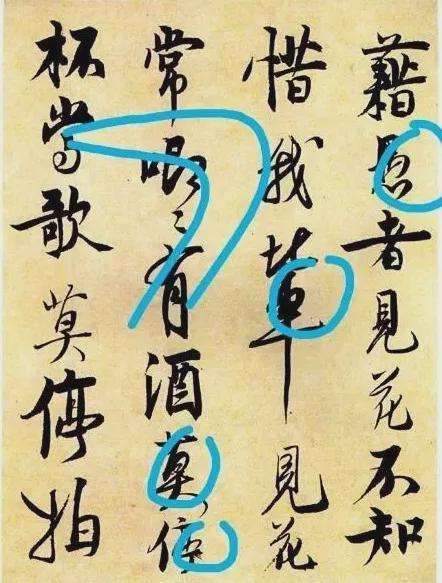 藉愚者見花不知
惜我輩見花
常有酒莫停
杯當歌莫停拍